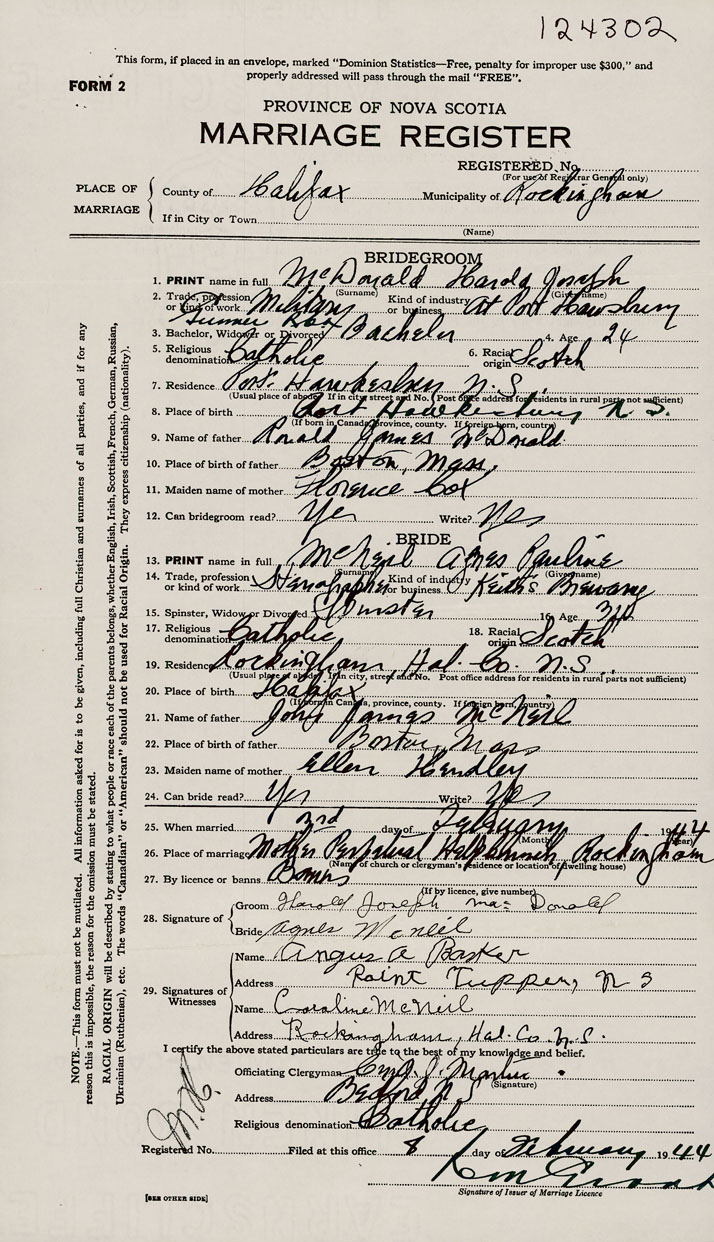 124302
This form, if placed in an envelope, marked "Dominion Statistics—Free, penalty for improper use $300," and
properly addressed will pass through the mail "FREE".
FORM 2
PROVINCE OF NOVA SCOTIA
MARRIAGE REGISTER
REGISTERED No.
(For use of Registrar General only)
PLACE OF MARRIAGE
County of Halifax Municipality of Rockingham
If in City or Town
(Name)
BRIDEGROOM
1. PRINT name in full McDonald Harold Joseph
(Surname) (Given name)
2. Trade, profession or kind of work Military Kind of industry or business at Port Hawkesbury
3. Bachelor, Widower or Divorced Bachelor 4. Age 24
5. Religious denomination Catholic 6. Racial origin Scotch
7. Residence Port Hawkesbury N.S.
(Usual place of abode. If in city street and No. Post office address for residents in rural part not sufficient)
8. Place of birth Port Hawkesbury N.S.
(If born in Canada, province, county. If foreign born, country)
9. Name of father Ronald James McDonald
10. Place of birth of father Boston, Mass.
11. Maiden name of mother Florence Cox
12. Can bridegroom read? Yes Write? Yes
BRIDE
13. PRINT name in full McNeil Agnes Pauline
(Surname) (Given name)
14. Trade, profession or kind of work Stenographer Kind of industry or business Keith's Brewary
15. Spinster, Widow or Divorced Spinster 16. Age
17. Religious denomination Catholic 18. Racial origin Scotch
19. Residence Rockingham, Hal. Co. N.S.
(Usual place of abode. If in city, street and No. Post office address for residents in rural parts not sufficient)
20. Place of birth Halifax
(If born in Canada, province, county. If foreign born, country)
21. Name of father John James McNeil
22. Place of birth of father Boston, Mass
23. Maiden name of mother Ellen Hendley
24. Can bride read? Yes Write? Yes
25. When married 3rd day of February 1944
(Month) (Year)
26. Place of marriage Mother Perpetual Help Church, Rockingham
(Name of church or clergyman's residence or location of dwelling house)
27. By licence or banns Banns
(If by licence, give number)
28. Signature of
Groom Harold Joseph MacDonald
Bride Agnes McNeil
29. Signatures of Witnesses
Name Angus A Barker
Address Point Tupper, N S
Name Caroline McNeil
Address Rockingham, Hal. Co. N.S.
I certify the above stated particulars are true to the best of my knowledge and belief.
Officiating Clergyman
(Signature)
Address Bedford N S
Religious denomination Catholic
Registered No. Filed at this office 8 day of February 1944
Signature of Issuer of Marriage Licence
[SEE OTHER SIDE]
NOTE.—This form must not be mutilated. All information asked for is to be given, including full Christian and surnames of all parties, and if for any
reason this is impossible, the reason for the omission must be stated.
RACIAL ORIGIN will be described by stating to what people or race each of the parents belongs, whether English, Irish, Scottish, French, German, Russian,
Ukrainian (Ruthenian), etc. The words "Canadian" or "American" should not be used for Racial Origin. They express citizenship (nationality).